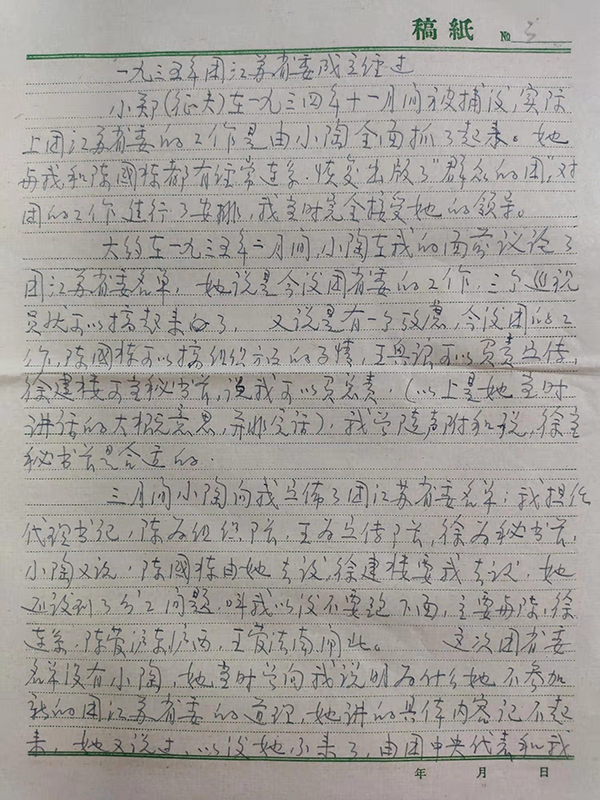 稿紙 № 3
一九三五年团江苏省委成立经过
小郑(征夫)在一九三四年十一月间被捕后,实际
上团江苏省委的工作是由小陶全面抓了起来。她
与我和陈國栋都有经常连系,恢复出版了"群众的团",对
团的工作进行了安排,我当时完全接受她的领导。
大约在一九三五年二月间,小陶在我的面前议论了
团江苏省委名单,她说是今后团省委的工作,三个巡视
员就可以搞起来的了,又说是有一个改虑,今后团的工
作,陈國栋可以搞组织方面的事情,王典讯可以负责宣传,
徐建楼可当秘书长,说我可以负总责,(以上是她当时
讲话的大概意思,并非原话),我曾随声附和说,徐当
秘书长是合适的.
三月间小陶向我宣佈了团江苏省委名单:我担任
代理书记,陈为组织部长,王为宣传部长,徐为秘书长,
小陶又说,陈國栋由她去谈,徐建楼要我去谈,她
还谈到了分工问题,叫我以后不要跑下面,主要与陈、徐
连系,陈管沪东沪西,王管法南闸北。 这次团省委
名单没有小陶,她当时曾向我说明为什么她不参加
新的团江苏省委的道理,她讲的具体内容记不起
来,她又说过,以后她不来了,由团中央代表和我
年 月 日